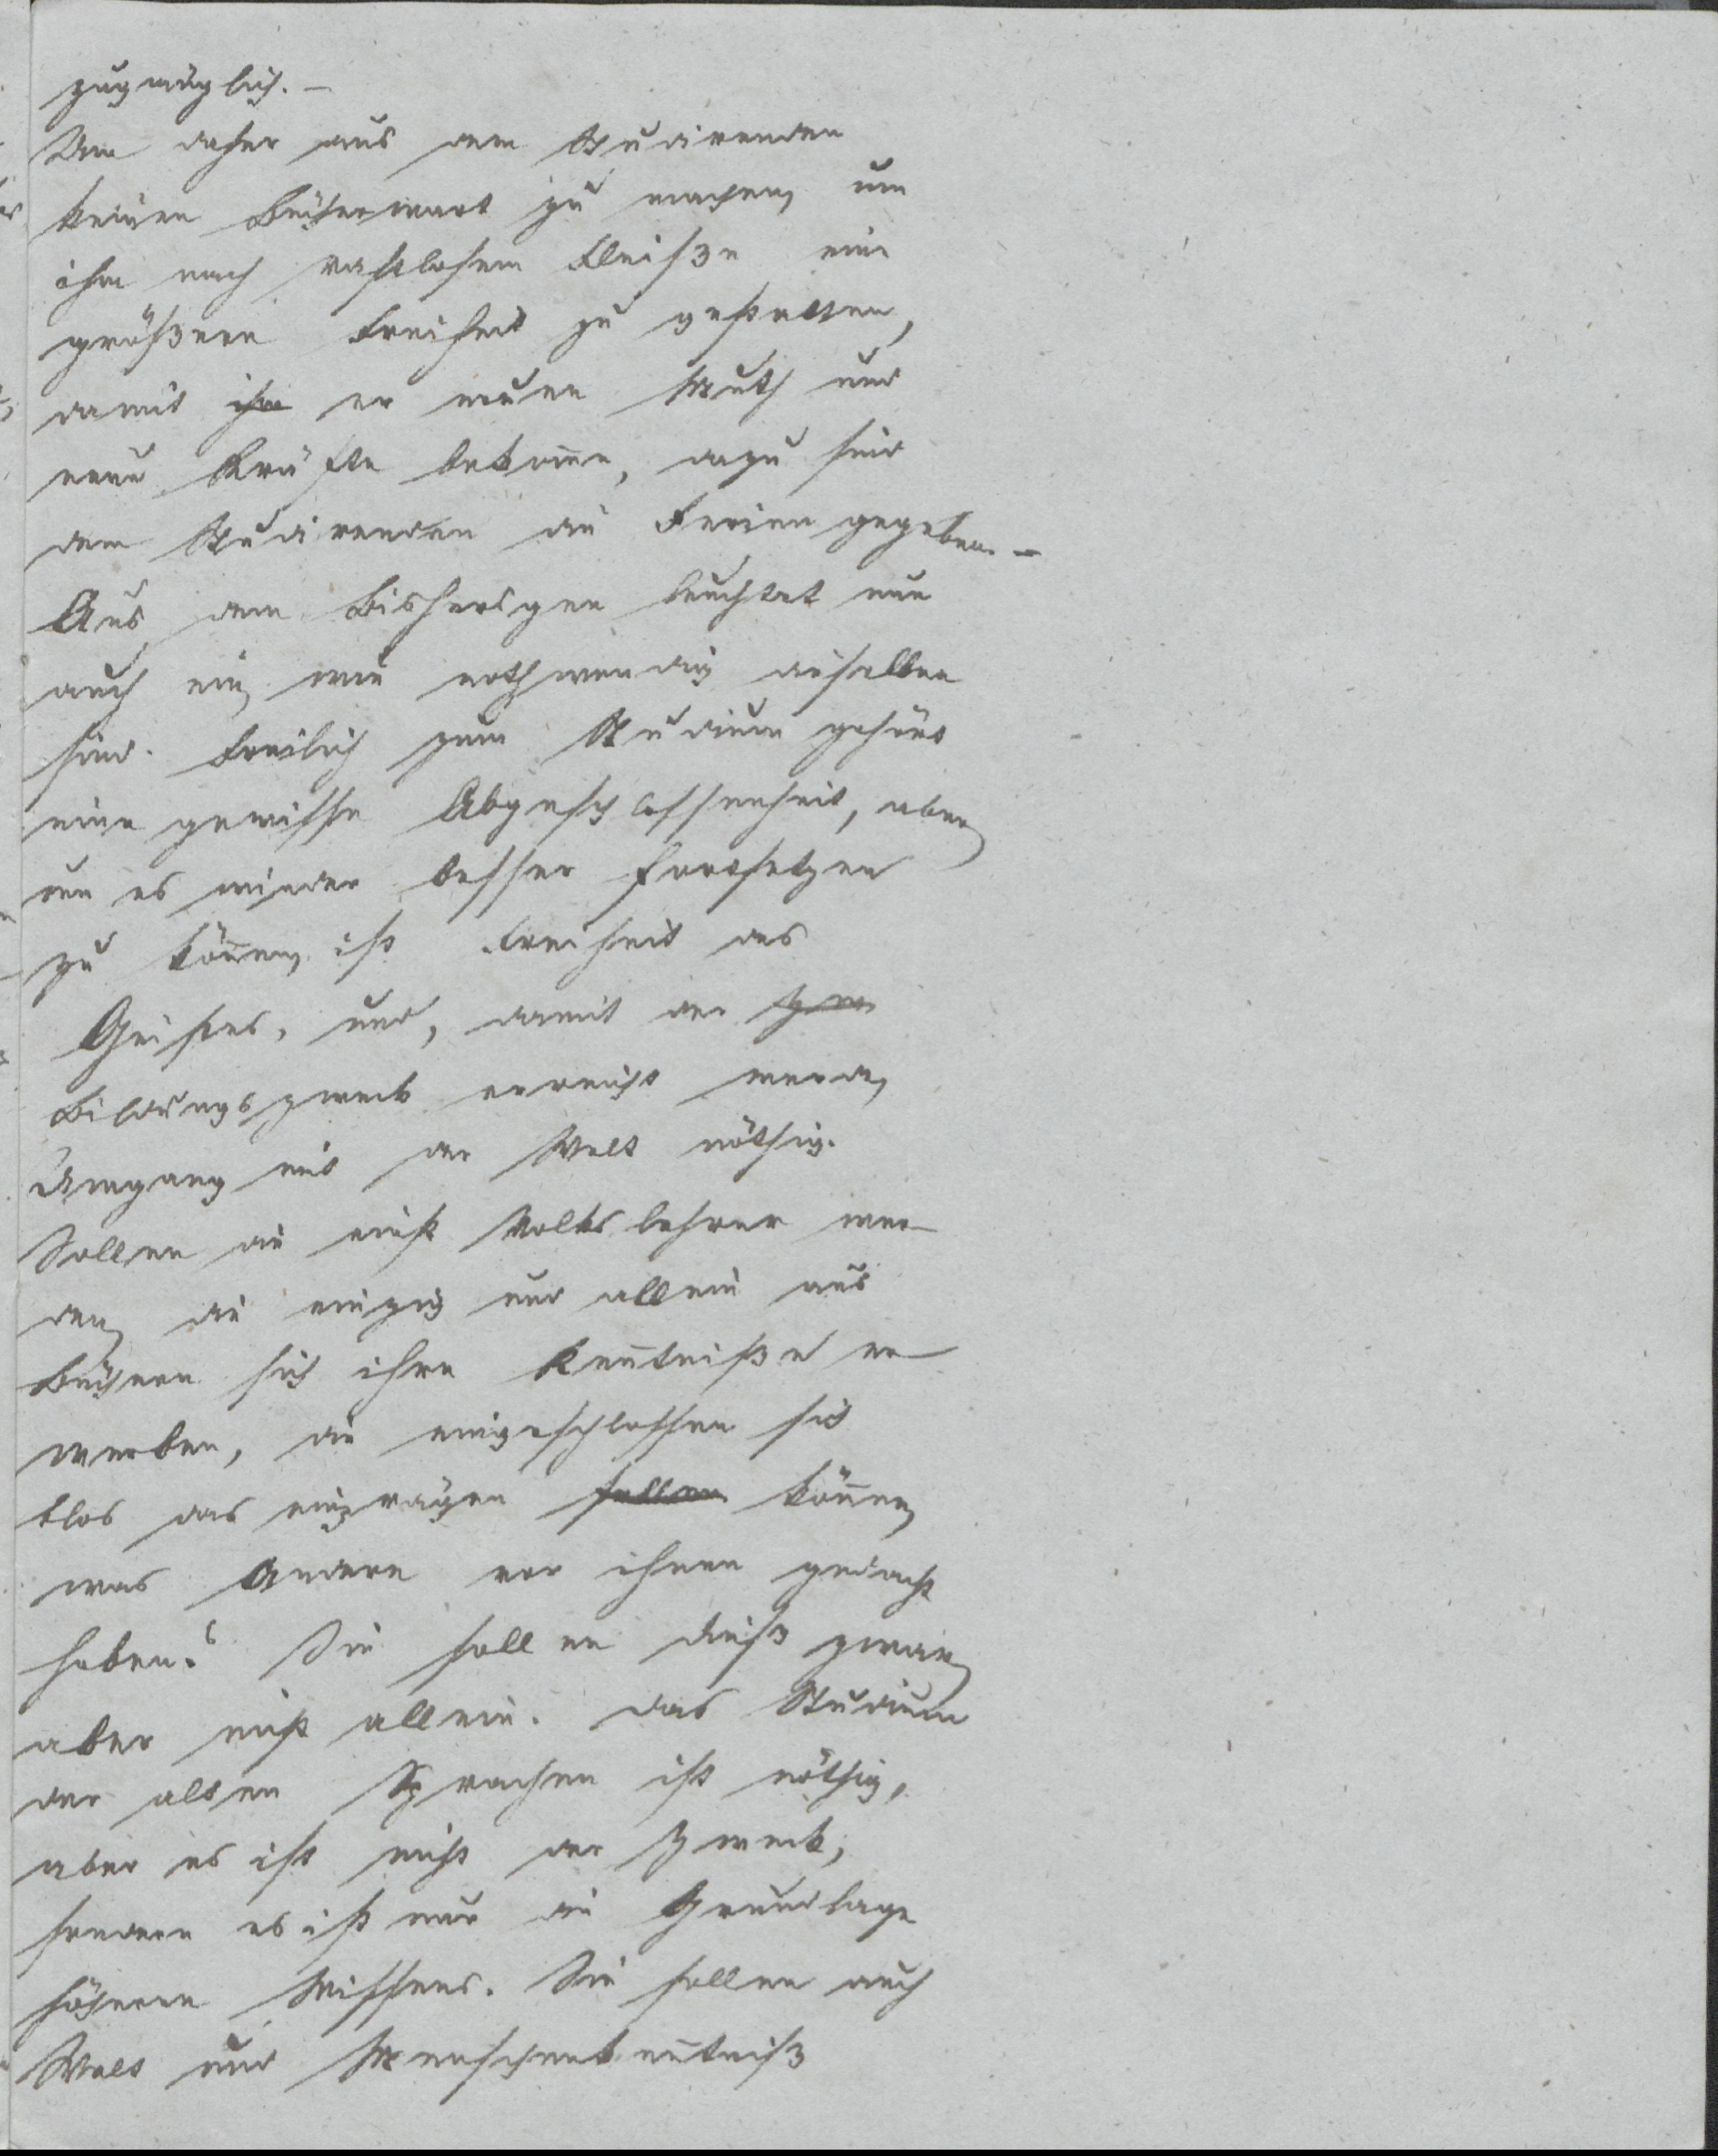 zuzüglich. –
Um daher aus dem Studirenden
keinen Bücherwurm zu machen, um
ihm nach rastlosem Fleiße eine
größere Freiheit zu gestatten,
damit ihm er neuen Muth und
neue Kräfte bekome, dazu sind
dem Studirenden die Ferien gegeben. –
Aus dem Bisherigen leuchtet nun
auch ein, wie nothwendig dieselben
sind. Freilich zum Studium gehört
eine gewisse Abgeschlossenheit, aber
um es wieder besser fortsetzen
zu könen, ist Freiheit des
Geistes, und, damit der Zw
Bildungszweck erreicht werde,
Umgang mit der Welt nöthig.
Sollen die einst Volkslehrer wer-
den, die einzig und allein aus
Büchern sich ihre Kentniße er-
werben, die eingeschlossen sich
blos das einprägen sollen könen,
was Andere vor ihnen gedacht
haben? Sie sollen dieß zwar,
aber nicht allein. Das Studium
der alten Sprachen ist nöthig,
aber es ist nicht der Zweck,
sondern es ist nur die Grundlage
höhern Wissens. Sie sollen auch
Welt und Menschenkentniß